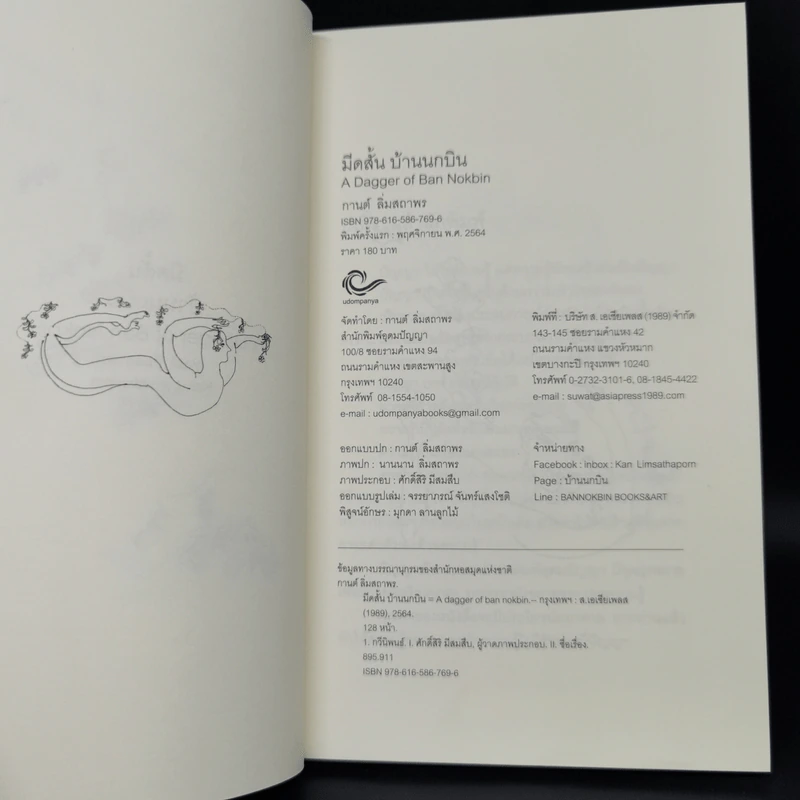 มีดสั้น บ้านนกบิน
A Dagger of Ban Nokbin
กานต์ ลิ่มสถาพร
ISBN 978-616-586-769-6
พิมพ์ครั้งแรก : พฤศจิกายน พ.ศ. 2564
ราคา 180 บาท
udompanya
จัดทำโดย : กานต์ ลิ่มสถาพร
สำนักพิมพ์อุดมปัญญา
100/8 ซอยรามคำแหง 94
ถนนรามคำแหง เขตสะพานสูง
กรุงเทพฯ 10240
โทรศัพท์ 08-1554-1050
e-mail : udompanyabooks@gmail.com
พิมพ์ที่ : บริษัท ส. เอเซียเพลส (1989) จำกัด
143-145 ซอยรามคำแหง 42
ถนนรามคำแหง แขวงหัวหมาก
เขตบางกะปิ กรุงเทพฯ 10240
โทรศัพท์ 0-2732-3101-6, 08-1845-4422
e-mail : suwat@asiapress1989.com
ออกแบบปก : กานต์ ลิ่มสถาพร
ภาพปก : นานนาน ลิ่มสถาพร
ภาพประกอบ : ศักดิ์สิริ มีสมสืบ
ออกแบบรูปเล่ม : จรรยาภรณ์ จันทร์แสงโชติ
พิสูจน์อักษร : มุกดา ลานลูกไม้
จำหน่ายทาง
Facebook : inbox : Kan Limsathaporn
Page : บ้านนกบิน
Line : BANNOKBIN BOOKS&ART
ข้อมูลทางบรรณานุกรมของสำนักหอสมุดแห่งชาติ
กานต์ ลิ่มสถาพร.
มีดสั้น บ้านนกบิน = A dagger of ban nokbin.-- กรุงเทพฯ : ส.เอเซียเพลส
(1989), 2564.
128 หน้า.
1. กวีนิพนธ์. I. ศักดิ์สิริ มีสมสืบ, ผู้วาดภาพประกอบ. II. ชื่อเรื่อง.
895.911
ISBN 978-616-586-769-6